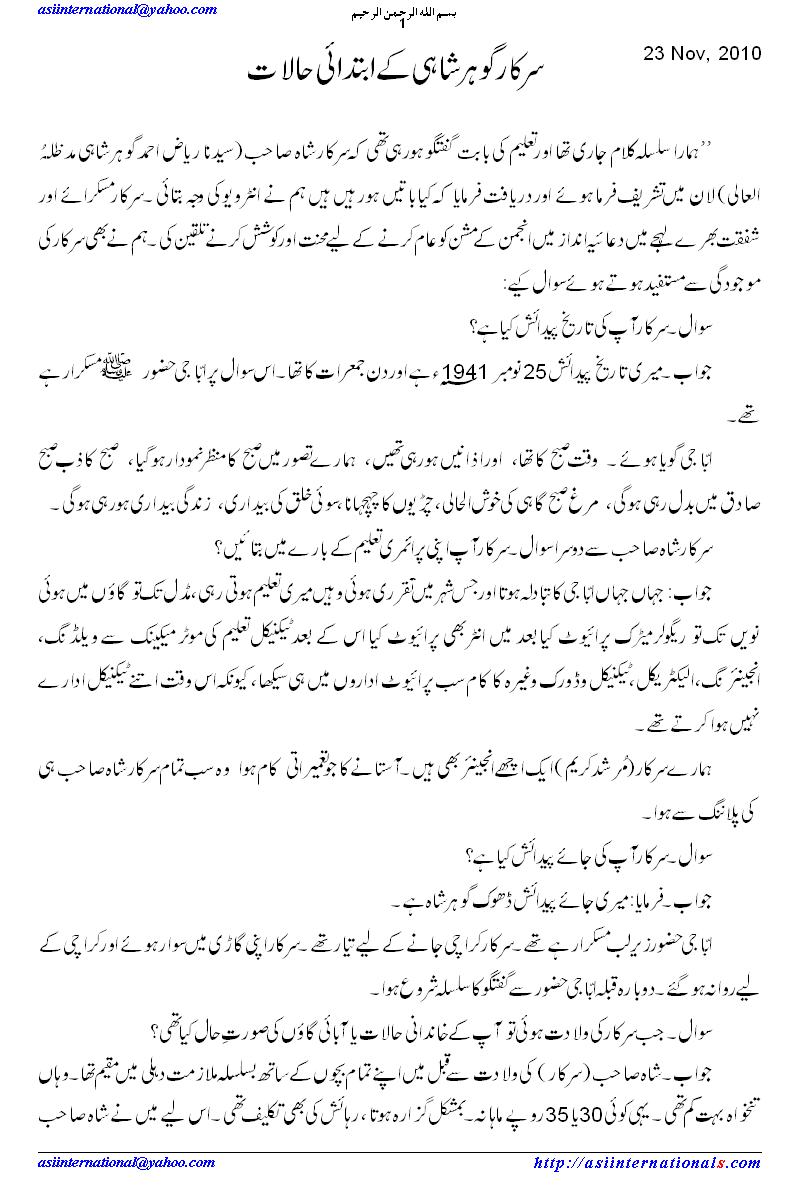 asiinternational@yahoo.com
بسم الله الرحمن الرحیم
1
23 Nov, 2010
سرکار گوھر شاہی کے ابتدائی حالات
’’ہمارا سلسلہ کلام جاری تھا اور تعلیم کی بابت گفتگو ہو رہی تھی کہ سرکار شاہ صاحب (سیدنا ریاض احمد گوھر شاہی مدظلہُ
العالی) لان میں تشریف فرما ہوئے اور دریافت فرمایا کہ کیا باتیں ہور ہیں ہیں ہم نے انٹرویو کی وجہ بتائی ۔ سرکار مسکرائے اور
شفقت بھرے لہجے میں دعائیہ انداز میں انجمن کے مشن کو عام کرنے کے لیے محنت اور کوشش کرنے تلقین کی ۔ ہم نے بھی سرکار کی
موجودگی سے مستفید ہوتے ہوئے سوال کیے:
سوال ۔ سرکار آپ کی تاریخ پیدائش کیا ہے؟
جواب ۔ میری تاریخ پیدائش 25 نومبر 1941ء ہے اور دن جمعرات کا تھا ۔ اس سوال پر ابّا جی حضور ﷺ مسکرا رہے
تھے ۔
ابّا جی گویا ہوئے ۔ وقت صبح کا تھا، اور اذانیں ہو رہی تھیں، ہمارے تصور میں صبح کا منظر نمودار ہو گیا، صبح کاذب صبح
صادق میں بدل رہی ہوگی، مرغ صبح گاہی کی خوش الحالی، چڑیوں کا چہچہانا، سوئی خلق کی بیداری، زندگی بیداری ہو رہی ہوگی ۔
سرکار شاہ صاحب سے دوسرا سوال ۔ سرکار آپ اپنی پرائمری تعلیم کے بارے میں بتائیں؟
جواب: جہاں جہاں ابّا جی کا تبادلہ ہوتا اور جس شہر میں تقرری ہوئی وہیں میری تعلیم ہوتی رہی، مڈل تک تو گاؤں میں ہوئی
نویں تک تو ریگولر میٹرک پرائیوٹ کیا بعد میں انٹر بھی پرائیوٹ کیا اس کے بعد ٹیکنیکل تعلیم کی موٹر میکینک سے ویلڈنگ،
انجینئرنگ، الیکٹریکل، ٹیکنیکل وڈورک وغیرہ کا کام سب پرائیوٹ اداروں میں ہی سیکھا، کیونکہ اس وقت اتنے ٹیکنیکل ادارے
نہیں ہوا کرتے تھے ۔
ہمارے سرکار (مُرشد کریم) ایک اچھے انجینئر بھی ہیں ۔ آستانے کا جو تعمیراتی کام ہوا وہ سب تمام سرکار شاہ صاحب ہی
کی پلاننگ سے ہوا ۔
سوال ۔ سرکار آپ کی جائے پیدائش کیا ہے؟
جواب ۔ فرمایا: میری جائے پیدائش ڈھوک گوھر شاہ ہے ۔
ابّا جی حضور زیر لب مسکرا رہے تھے ۔ سرکار کراچی جانے کے لیے تیار تھے ۔ سرکار اپنی گاڑی میں سوار ہوئے اور کراچی کے
لیے روانہ ہو گئے ۔ دوبارہ قبلہ ابّا جی حضور سے گفتگو کا سلسلہ شروع ہوا ۔
سوال ۔ جب سرکار کی ولادت ہوئی تو آپ کے خاندانی حالات یا آبائی گاؤں کی صورتِ حال کیا تھی؟
جواب ۔ شاہ صاحب (سرکار) کی ولادت سے قبل میں اپنے تمام بچوں کے ساتھ بسلسلہ ملازمت دہلی میں مقیم تھا ۔ وہاں
تنخواہ بہت کم تھی ۔ یہی کوئی 30 یا 35 روپے ماہانہ ۔ بمشکل گزارہ ہوتا، رہائش کی بھی تکلیف تھی ۔ اس لیے میں نے شاہ صاحب
asiinternational@yahoo.com
http://asiinternationals.com